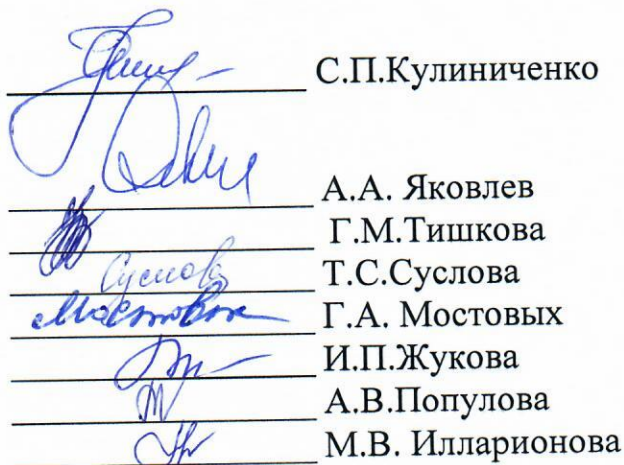 С.П.Кулиниченко
А.А. Яковлев
Г.М.Тишкова
Суслова Т.С.Суслова
Мостовых Г.А. Мостовых
И.П.Жукова
А.В.Популова
М.В. Илларионова